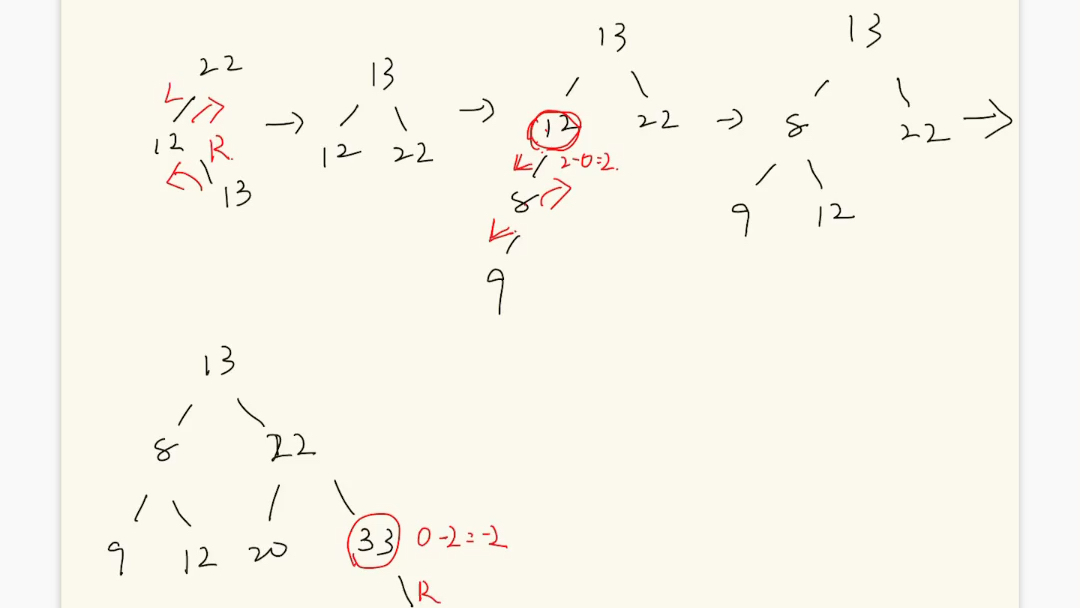 22
L
12 R
13
→
13
12 22
→
13
12 22
2-0=2.
8
9
→
13
8 22
9 12
→
13
8 22
9 12 20 33 0-2=-2
R